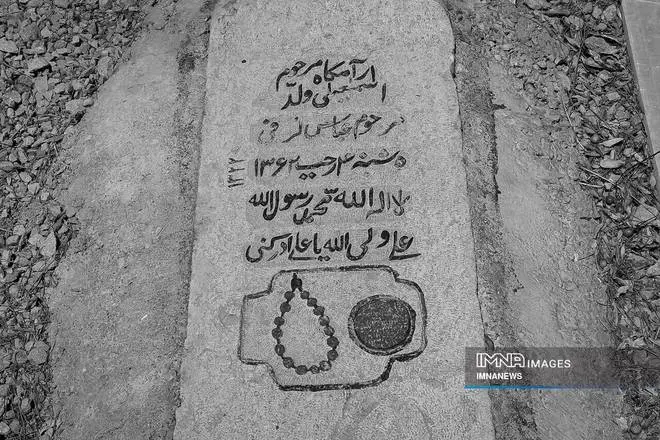 آرامگاه مرحوم
ولد
مرحوم عباس
شنبه ۴ رجب ۱۳۶۲
۱۳۲۲
لا اله الا الله محمد رسول الله
علی ولی الله یا علی ادرکنی
IMNA IMAGES
IMNANEWS